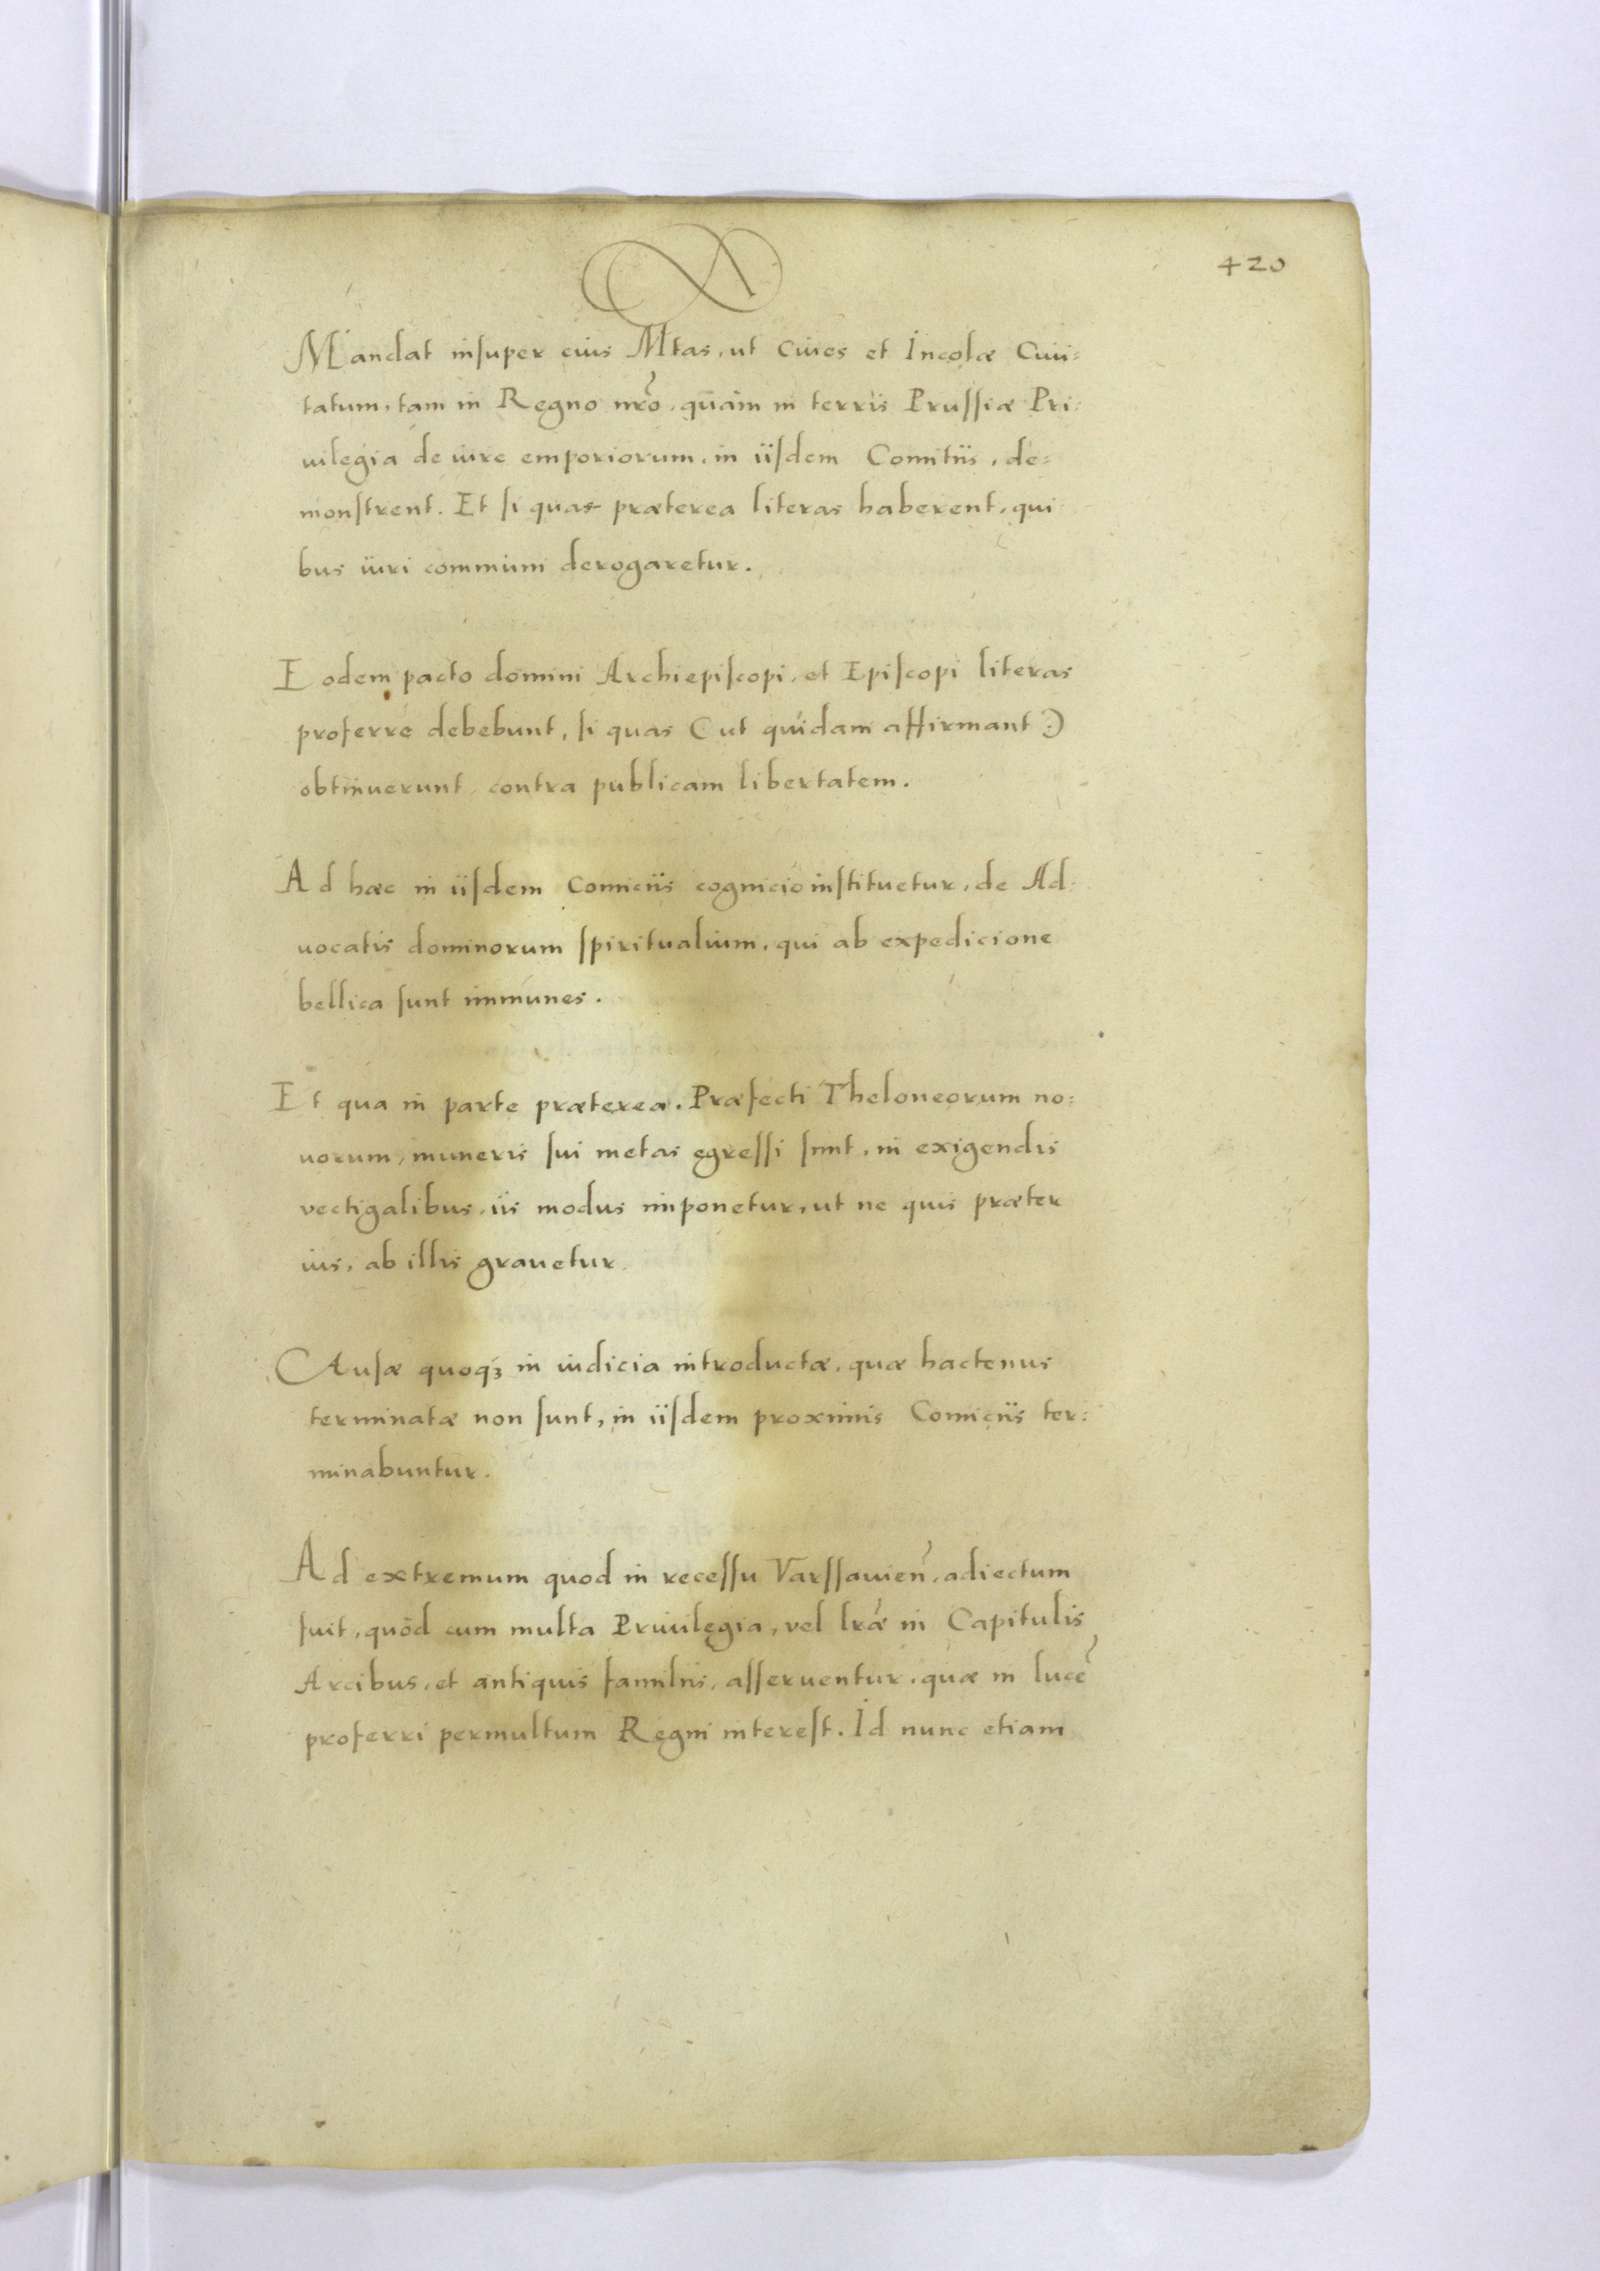 420
Mandat insuper eius Mtas, ut Ciues et Incolæ Ciui:
tatum, tam in Regno nr̃o, quàm in terris Prussiæ Pri:
uilegia de iure emporiorum, in iisdem Comitiis, de:
monstrent. Et si quas præterea literas haberent, qui
bus iuri communi derogaretur.
Eodem pacto domini Archiepiscopi, et Episcopi literas
proferre debebunt, si quas ( ut quidam affirmant :)
obtinuerunt, contra publicam libertatem.
Ad hæc in iisdem Comiciis cognicio instituetur, de Ad:
uocatis dominorum spiritualium, qui ab expedicione
bellica sunt immunes.
Et qua in parte præterea, Præfecti Theloneorum no:
uorum, muneris sui metas egressi sunt, in exigendis
vectigalibus, iis modus imponetur, ut ne quis præter
ius, ab illis grauetur.
CAusæ quoq3 in iudicia introductæ, quæ hactenus
terminatæ non sunt, in iisdem proximis Comiciis ter:
minabuntur.
Ad extremum quod in recessu Varssauien̄, adiectum
fuit, quòd cum multa Priuilegia, vel lr̃æ in Capitulis
Arcibus, et antiquis familiis, asseruentur, quæ in lucē
proferri permultum Regni interest. Id nunc etiam